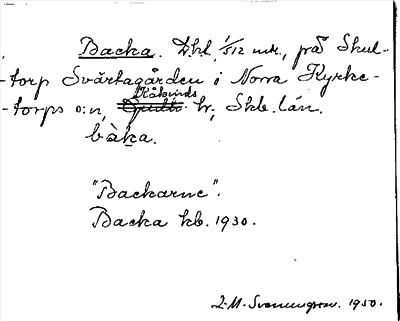 Backa. Lhl, 1/512 mtr., på Skul-
-torp Svärtagården i Norra Kyrke-
-torps s:n, Kåkinds hr; Skb. län.
bàka.
"Backarne".
Backa kb. 1930.
L-M. Svenungson. 1950.